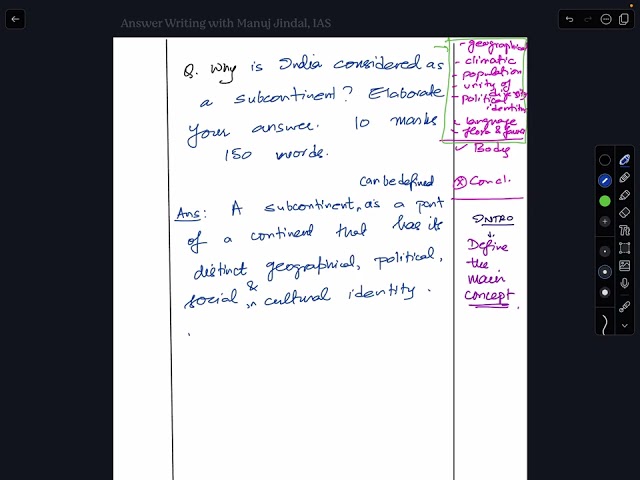 Answer Writing with Manuj Jindal, IAS
Q. Why is India considered as
a subcontinent? Elaborate
your answer. 10 marks
150 words.
can be defined
Ans: A subcontinent, as a part
of a continent that has its
distinct geographical, political,
social & cultural identity.
- geographical
- climatic
- population
- unity of
diversity
- political
identity
- language
- flora & fauna
✓ Body
Concl.
INTRO
↓
Define
the
main
concept.